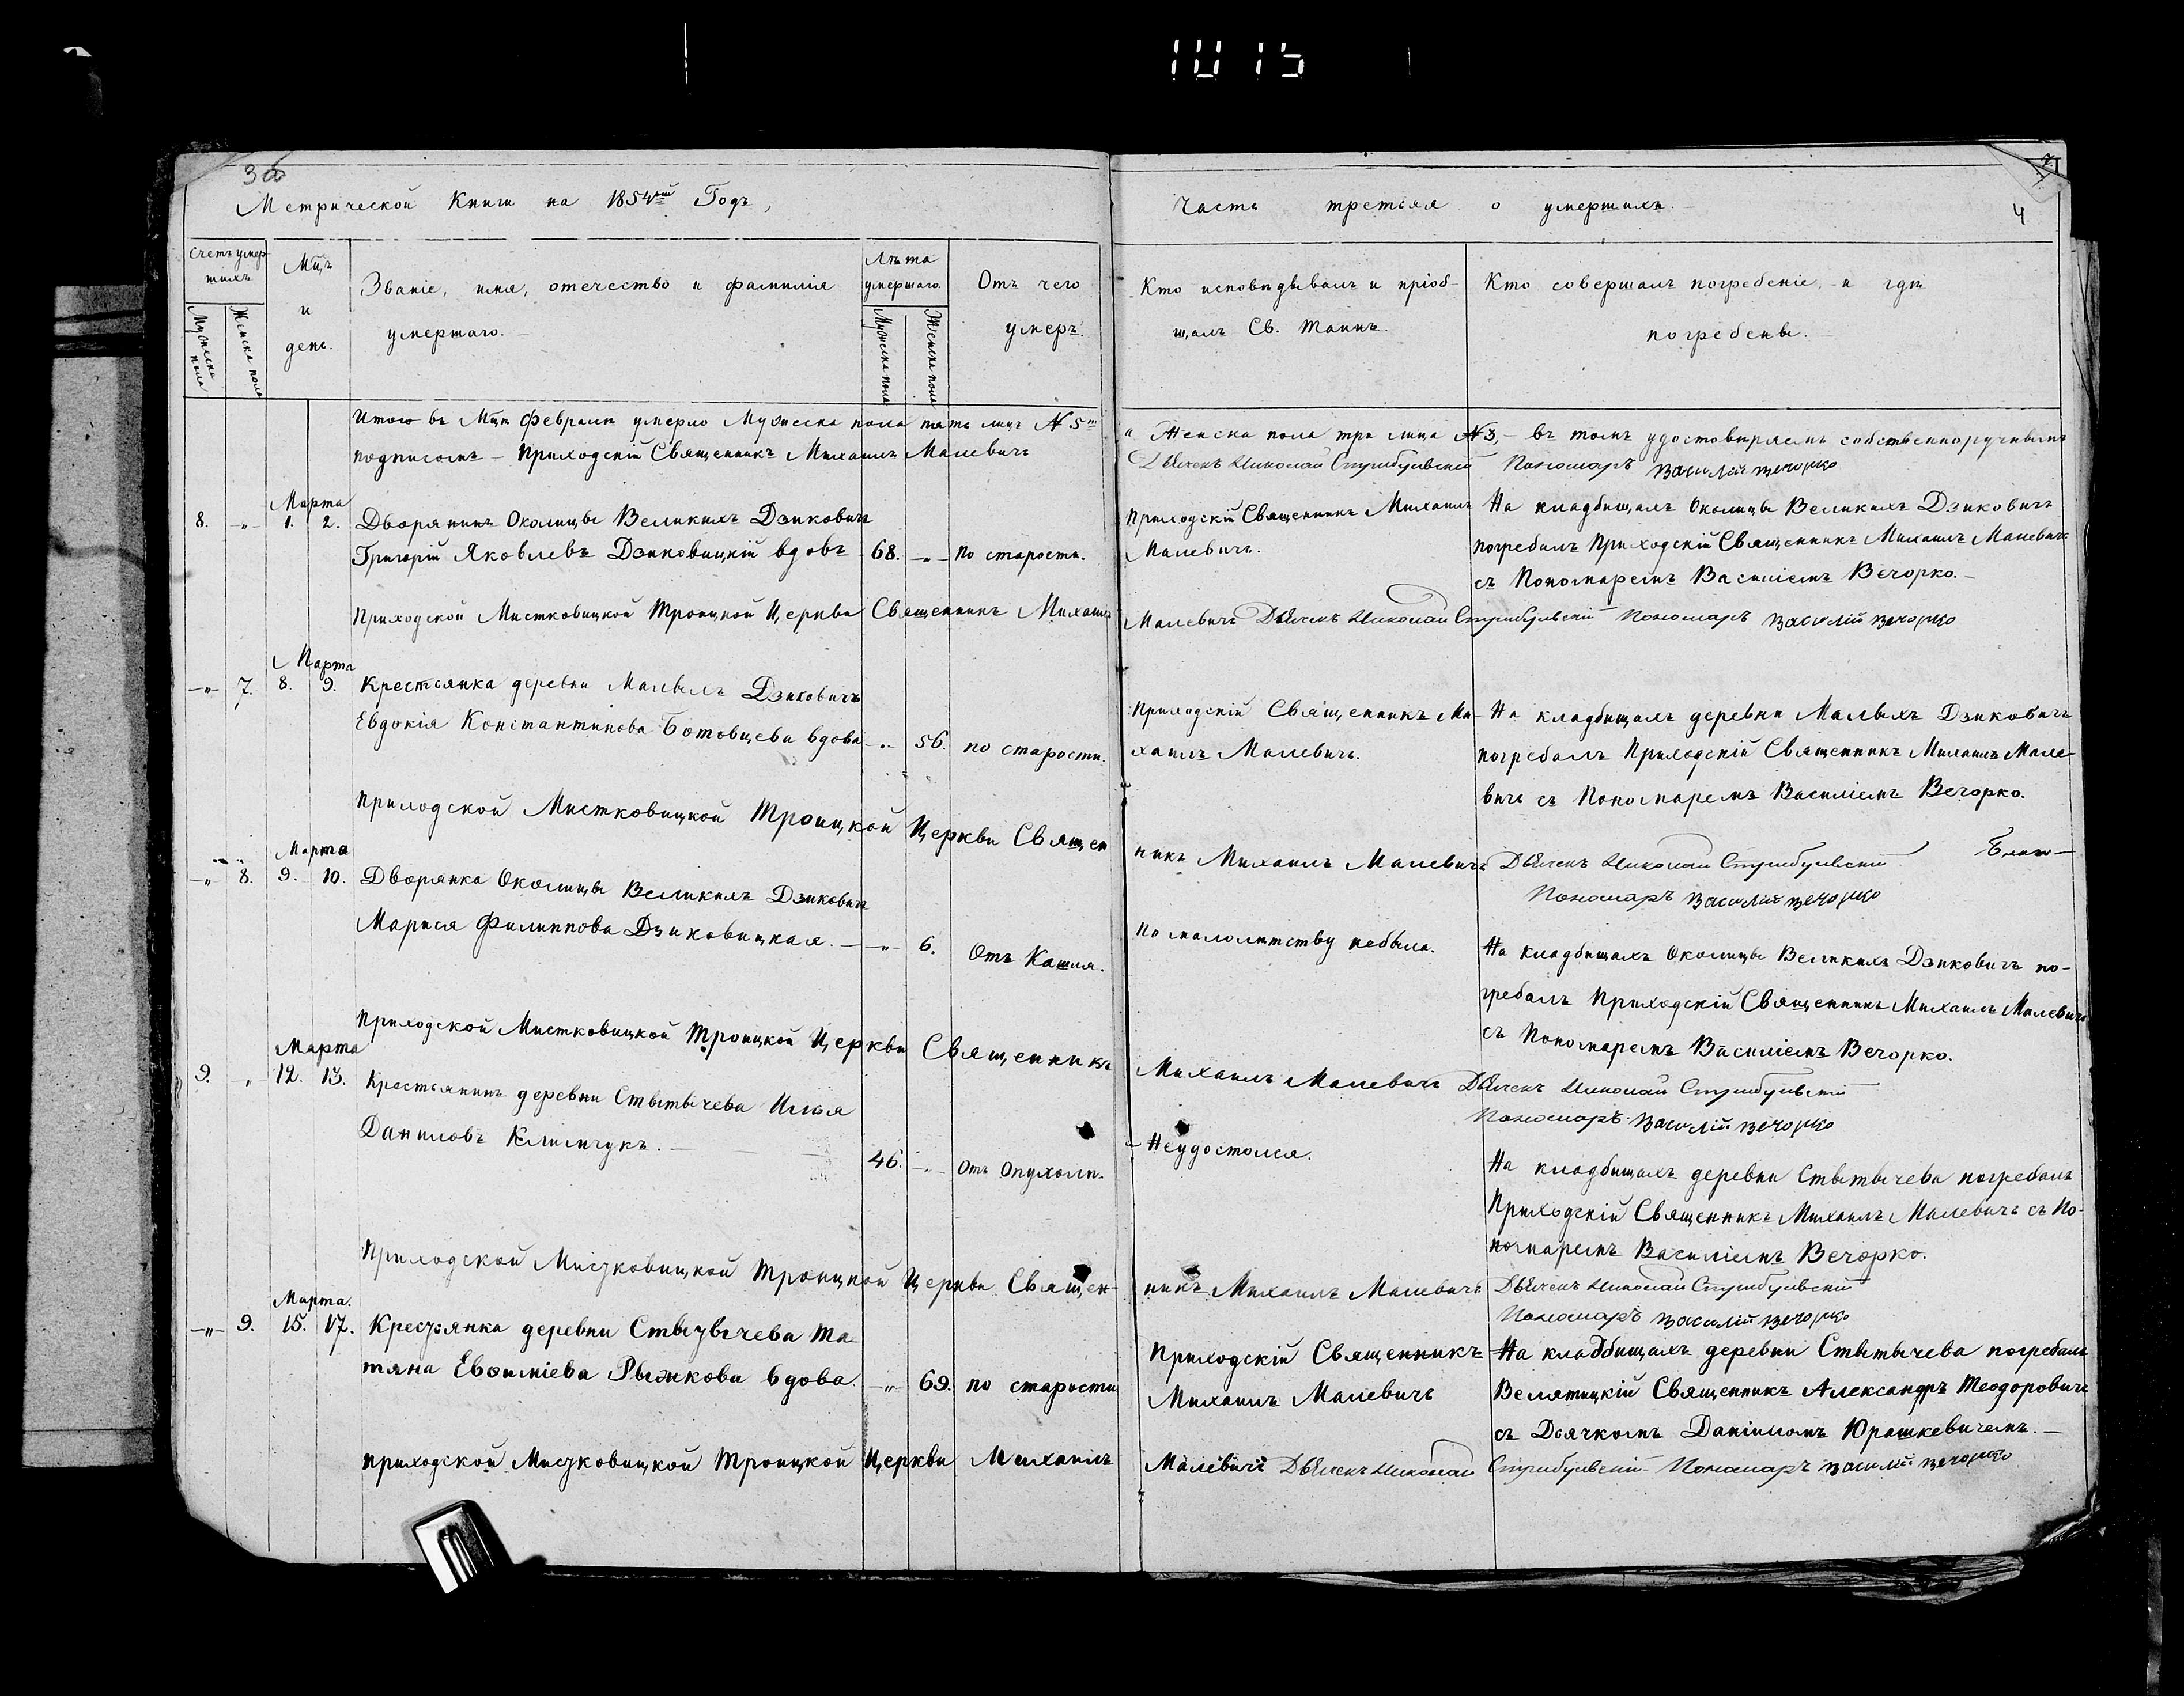 1015
3об
Метрической Книги на 1854ый Годъ,
Часть третьяя о умершихъ.
4
Счетъ умер-
шихъ
Мужеска пола
Женска пола
Мцъ
и
день.
Званіе, имя, отечество и фамилія
умершаго.
Лѣта
умершаго.
Мужеска пола
Женска пола
Отъ чего
умеръ.
Кто исповѣдывалъ и пріоб-
щалъ Св. Таинъ.
Кто совершалъ погребеніе, и гдѣ
погребены.
Итого въ Мцѣ Февралѣ умерло Мужеска пола пять лицъ N. 5 и Женска пола три лица N 3, – въ томъ удостовѣряемъ собственноручнымъ
подписомъ – Приходскій Священникъ Михаилъ Малевичъ Дьячекъ Николай Стрибульскій Пономаръ Василій Вечорко
Марта
8. -"- 1. 2. Дворянинъ Околицы Великихъ Дзиковичъ
Григорій Яковлевъ Дзиковицкій вдовъ 68. -"- По старости.
Приходскій Священникъ Михаилъ
Малевичъ.
На кладбищахъ Околицы Великихъ Дзиковичъ
погребалъ Приходскій Священникъ Михаилъ Малевичъ
съ Пономаремъ Василіемъ Вечорко.
Приходской Мистковицкой Троицкой Церкви Священникъ Михаилъ Малевичъ Дьячекъ Николай Стрибульскій Пономаръ Василій Вечорко
Марта
-"- 7. 8. 9. Крестьянка деревни Малыхъ Дзиковичъ
Евдокія Константинова Ботовцева вдова -"- 56. по старости.
Приходскій Священникъ Ми-
хаилъ Малевичъ.
На кладбищахъ деревни Малыхъ Дзиковичъ
погребалъ Приходскій Священникъ Михаилъ Мале-
вичъ съ Пономаремъ Василіемъ Вечорко.
Приходской Мистковицкой Троицкой Церкви Священ
никъ Михаилъ Малевичъ Дьячекъ Николай Стрибульскій
Пономаръ Василій Вечорко
Марта
-"- 8. 9. 10. Дворянка Околицы Великихъ Дзиковичъ
Марися Филиппова Дзиковицкая. -"- 6. Отъ Кашля.
По малолѣтству небыла.
На кладбищахъ Околицы Великихъ Дзиковичъ по-
гребалъ Приходскій Священникъ Михаилъ Малевичъ
съ Пономаремъ Василіемъ Вечорко.
Приходской Мистковицкой Троицкой Церкви Священникъ
Михаилъ Малевичъ Дьячекъ Николай Стрибульскій
Пономаръ Василій Вечорко
Марта
9. " 12. 13. Крестьянинъ деревни Стытычева Илья
Даниловъ Климчукъ. 46. -"- Отъ Опухоли.
Неудостоился.
На кладбищахъ деревни Стытычева погребалъ
Приходскій Священникъ Михаилъ Малевичъ съ По-
номаремъ Василіемъ Вечорко.
Приходской Мистковицкой Троицкой Церкви Священ-
никъ Михаилъ Малевичъ Дьячекъ Николай Стрибульскій
Пономаръ Василій Вечорко
Марта.
-"- 9. 15. 17. Крестьянка деревни Стытычева Та-
тяна Евфиміева Рыжкова вдова. -"- 69. по старости
Приходскій Священникъ
Михаилъ Малевичъ
На кладбищахъ деревни Стытычева погребалъ
Велятицкій Священникъ Александръ Теодоровичъ
съ Дьячкомъ Даніиломъ Юрашкевичемъ.
Приходской Мистковицкой Троицкой Церкви Михаилъ Малевичъ Дьячекъ Николай Стрибульскій Пономаръ Василій Вечорко